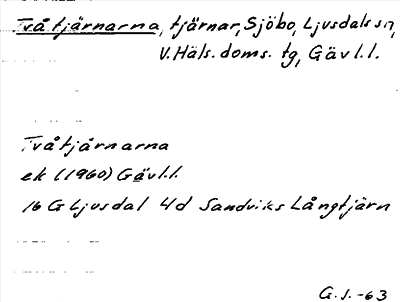 Tvåtjärnarna, tjärnar, Sjöbo, Ljusdals sn,
V. Häls. doms. tg, Gävl. l.
Tvåtjärnarna
ek (1960) Gävl. l.
16 G Ljusdal 4d Sandviks Långtjärn
G. J. -63